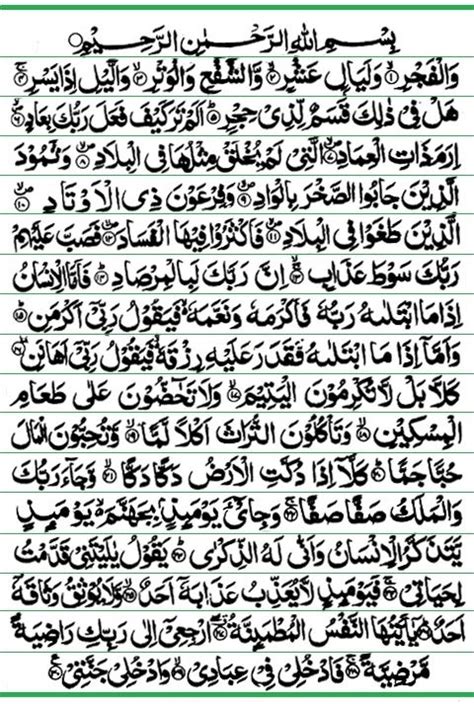 بِسْمِ اللهِ الرَّحْمٰنِ الرَّحِيْمِ
وَالْفَجْرِ ۙ‏﴿۱﴾ وَلَيَالٍ عَشْرٍ ۙ‏﴿۲﴾ وَّالشَّفْعِ وَالْوَتْرِ ۙ‏﴿۳﴾ وَالَّيْلِ اِذَا يَسْرِ ۚ‏﴿۴﴾
هَلْ فِىْ ذٰلِكَ قَسَمٌ لِّذِىْ حِجْرٍ ؕ‏﴿۵﴾ اَلَمْ تَرَ كَيْفَ فَعَلَ رَبُّكَ بِعَادٍ ۙ‏﴿۶﴾
اِرَمَ ذَاتِ الْعِمَادِ ۙ‏﴿۷﴾ الَّتِىْ لَمْ يُخْلَقْ مِثْلُهَا فِى الْبِلَادِ ۙ‏﴿۸﴾ وَثَمُوْدَ
الَّذِيْنَ جَابُوا الصَّخْرَ بِالْوَادِ ۙ‏﴿۹﴾ وَفِرْعَوْنَ ذِى الْاَوْتَادِ ۙ‏﴿۱۰﴾
الَّذِيْنَ طَغَوْا فِى الْبِلَادِ ۙ‏﴿۱۱﴾ فَاَكْثَرُوْا فِيْهَا الْفَسَادَ ۙ‏﴿۱۲﴾ فَصَبَّ عَلَيْهِمْ
رَبُّكَ سَوْطَ عَذَابٍ ۚ‏﴿۱۳﴾ اِنَّ رَبَّكَ لَبِالْمِرْصَادِ ؕ‏﴿۱۴﴾ فَاَمَّا الْاِنْسَانُ
اِذَا مَا ابْتَلٰىهُ رَبُّهٗ فَاَكْرَمَهٗ وَنَعَّمَهٗ ۙ فَيَقُوْلُ رَبِّىْۤ اَكْرَمَنِ ؕ‏﴿۱۵﴾
وَاَمَّاۤ اِذَا مَا ابْتَلٰىهُ فَقَدَرَ عَلَيْهِ رِزْقَهٗ ۙ فَيَقُوْلُ رَبِّىْۤ اَهَانَنِ ۚ‏﴿۱۶﴾
كَلَّا بَلْ لَّا تُكْرِمُوْنَ الْيَتِيْمَ ۙ‏﴿۱۷﴾ وَلَا تَحٰٓضُّوْنَ عَلٰى طَعَامِ
الْمِسْكِيْنِ ۙ‏﴿۱۸﴾ وَتَاْكُلُوْنَ التُّرَاثَ اَكْلًا لَّمًّا ۙ‏﴿۱۹﴾ وَّتُحِبُّوْنَ الْمَالَ
حُبًّا جَمًّا ؕ‏﴿۲۰﴾ كَلَّاۤ اِذَا دُكَّتِ الْاَرْضُ دَكًّا دَكًّا ۙ‏﴿۲۱﴾ وَّجَآءَ رَبُّكَ
وَالْمَلَكُ صَفًّا صَفًّا ۚ‏﴿۲۲﴾ وَجِاىْٓءَ يَوْمَئِذٍۢ بِجَهَنَّمَ ۙ يَوْمَئِذٍ
يَّتَذَكَّرُ الْاِنْسَانُ وَاَنّٰى لَهُ الذِّكْرٰى ؕ‏﴿۲۳﴾ يَقُوْلُ يٰلَيْتَنِىْ قَدَّمْتُ
لِحَيَاتِىْ ۚ‏﴿۲۴﴾ فَيَوْمَئِذٍ لَّا يُعَذِّبُ عَذَابَهٗۤ اَحَدٌ ۙ‏﴿۲۵﴾ وَّلَا يُوْثِقُ وَثَاقَهٗۤ
اَحَدٌ ؕ‏﴿۲۶﴾ يٰۤاَيَّتُهَا النَّفْسُ الْمُطْمَئِنَّةُ ۖ‏﴿۲۷﴾ ارْجِعِىْۤ اِلٰى رَبِّكِ رَاضِيَةً
مَّرْضِيَّةً ۚ‏﴿۲۸﴾ فَادْخُلِىْ فِىْ عِبٰدِىْ ۙ‏﴿۲۹﴾ وَادْخُلِىْ جَنَّتِىْ ‏﴿۳۰﴾